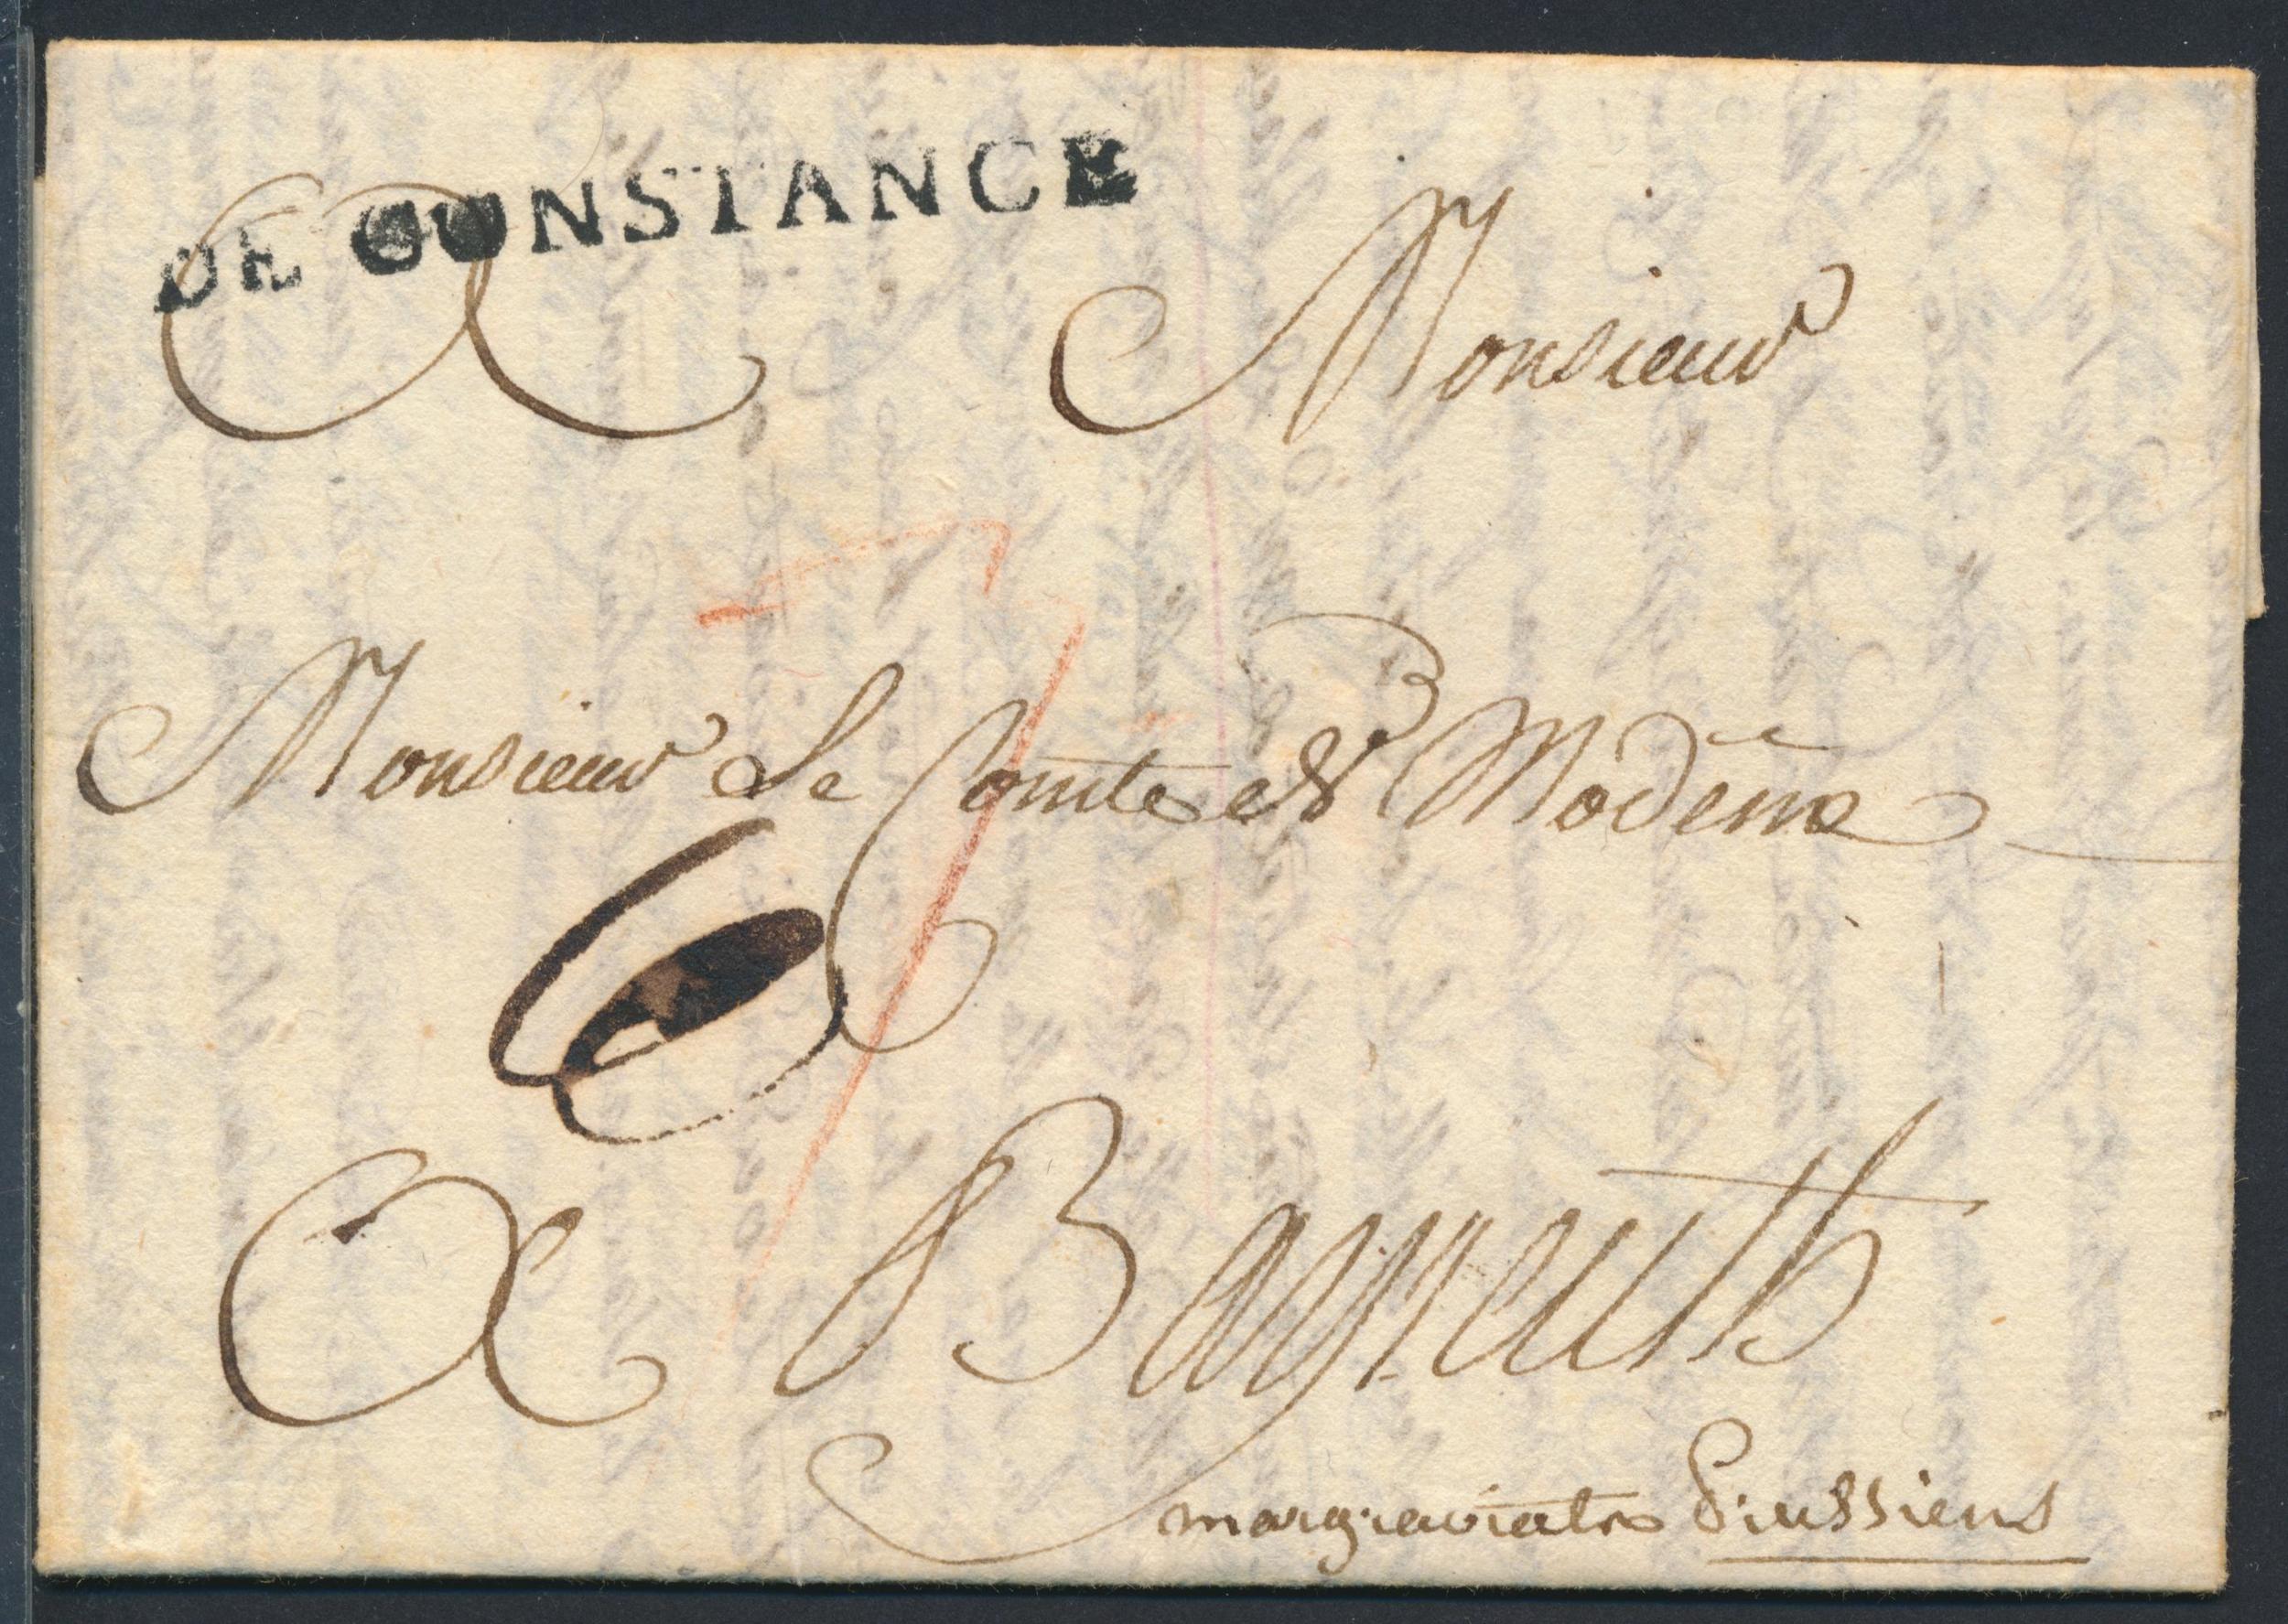 DE CONSTANCE
A Monsieur
Monsieur Le Comte de Modène
6
A Bayreuth
margraviats Prussiens